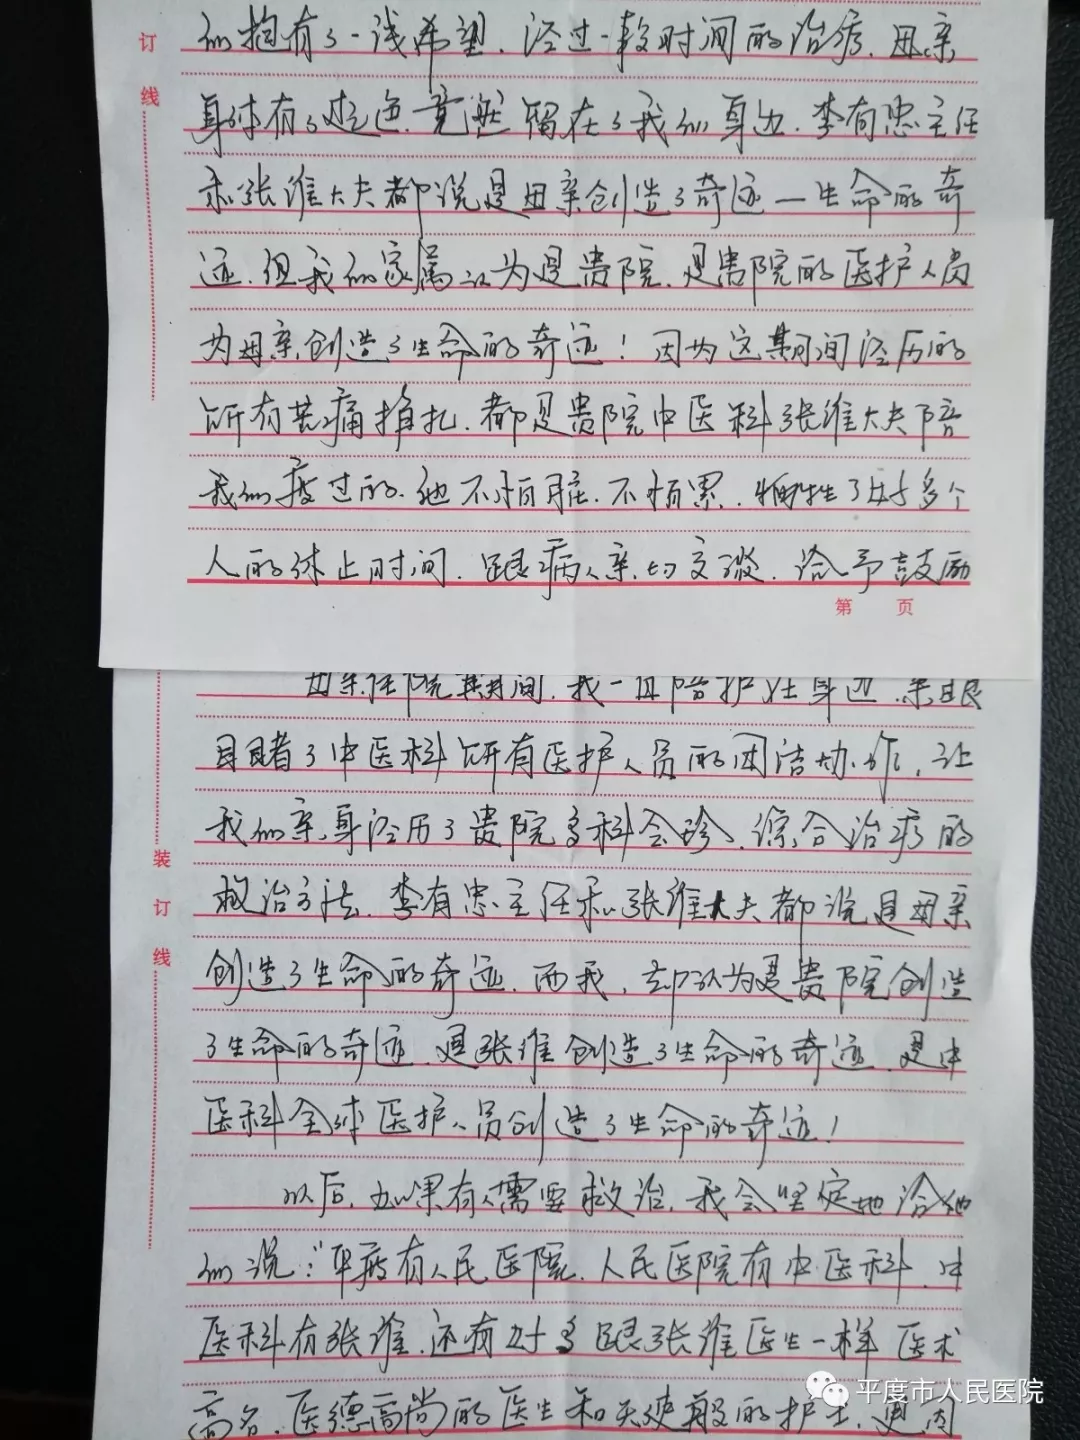 订
线
们抱有了一线希望。经过一段时间的治疗，母亲
身体有了起色，竟然留在了我们身边。李有忠主任
和张维大夫都说是母亲创造了奇迹—生命的奇
迹，但我们家属认为是贵院，是贵院的医护人员
为母亲创造了生命的奇迹！因为这期间经历的
所有苦痛挣扎，都是贵院中医科张维大夫陪
我们度过的，他不怕脏、不怕累，牺牲了好多个
人的休止时间，跟病人亲切交谈，给予鼓励
第 页
母亲住院期间，我一直陪护在身边，亲眼
目睹了中医科所有医护人员的团洁协作，让
我们亲身经历了贵院多科会珍、综合治疗的
救治方法，李有忠主任和张维大夫都说是母亲
创造了生命的奇迹，而我，却认为是贵院创造
了生命的奇迹，是张维创造了生命的奇迹，是中
医科全体医护人员创造了生命的奇迹！
以后，如果有人需要救治，我会坚定地给他
们说：“平度有人民医院，人民医院有中医科，中
医科有张维，还有好多跟张维医生一样医术
高名、医德高尚的医生和天使般的护士，更有
装
订
线
平度市人民医院